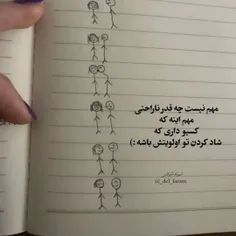 مهم نیست چه قدر ناراحتی
مهم اینه که
کسیو داری که
شاد کردن تو اولویتش باشه :)